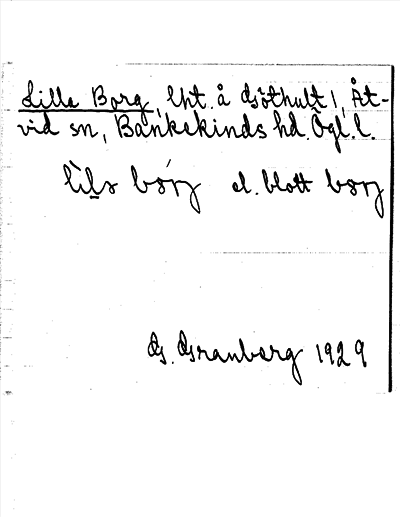 Lilla Borg, lht. å Göthult 1, Åt-
vid sn, Bankekinds hd. Ögl. l.
lìlа bórj el. blott borj
G. Granberg 1929